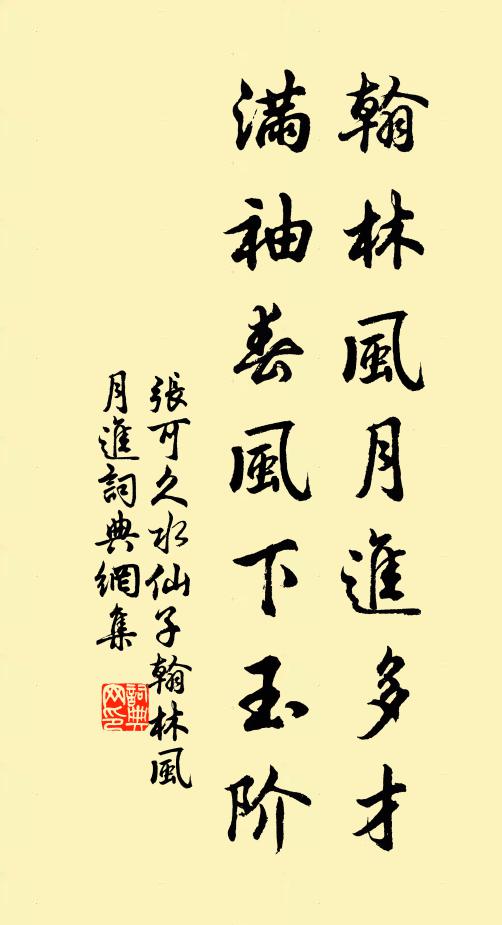 翰林風月進多才
滿袖春風下玉阶
張可久水仙子翰林風
月進詞典網集
詞典网印